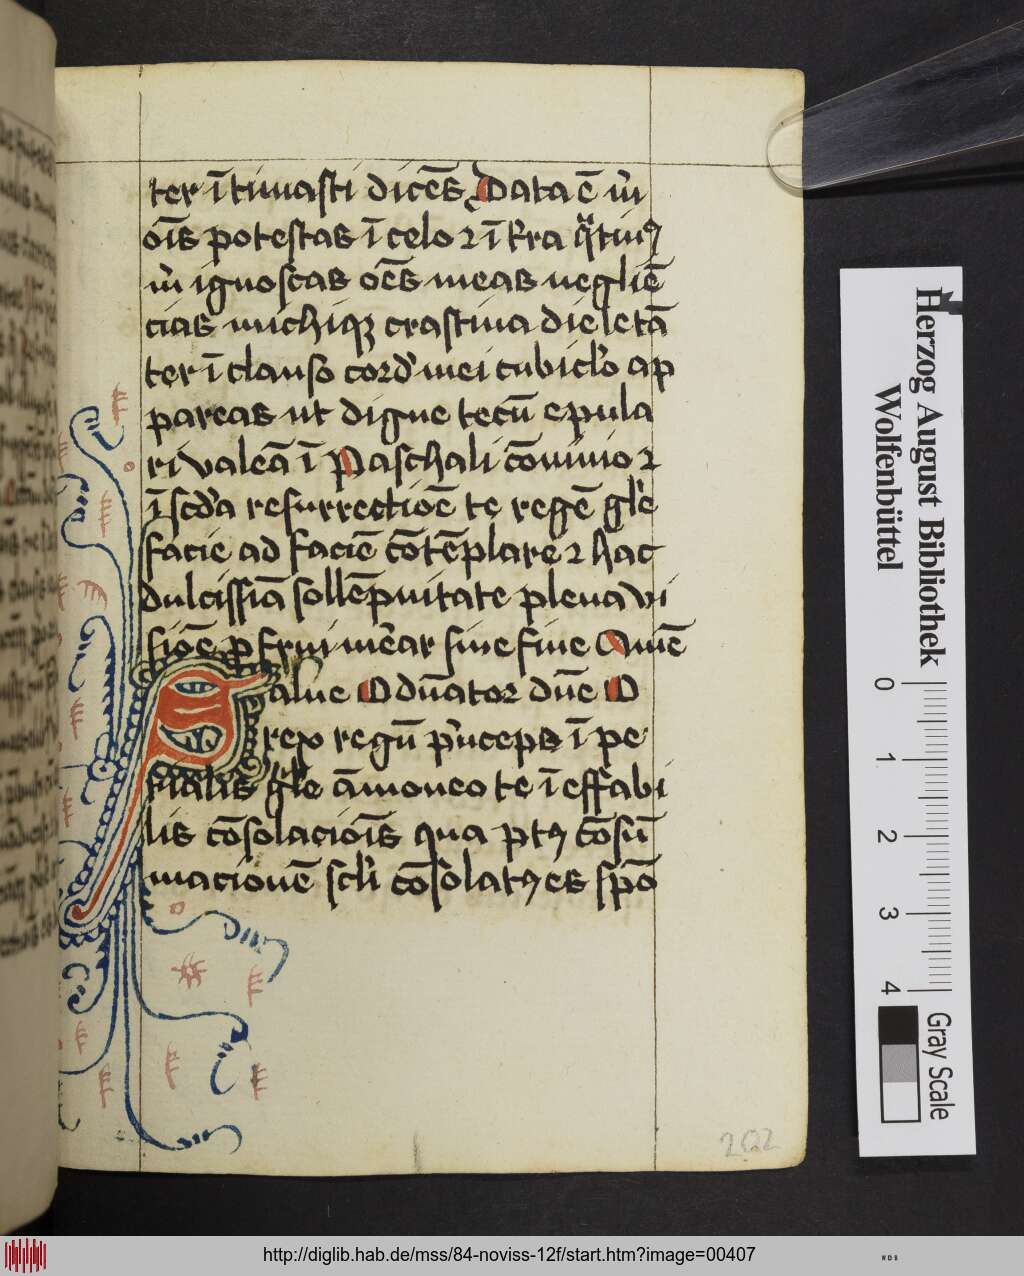 ter ī timasti dicēs Data ē m̄
oīs potestas ī celo ⁊ ī t̄ra
m̄ ignoscas oēs meas negliē
cias michiqꝫ crastina die letā
ter ī clauso cord' mei cubicl'o ap
pareas ut digne tecū epula
ri valeā ī Paschali cōuiuio ⁊
ī scd'a resurrectiōe te regē gl'e
facie ad faciē cōtēplare ⁊ hac
dulcissīa sollēpnitate plena vi
siōe ꝑfrui m̄ear sine fine Amē
Salue O dūator dūe O
rex regū p'nceps ī pe
rialis gl'e āmoneo te ī effabi
lis cōsolaciōīs qua ptꝰ cōsū
macionē scl'i cōsolatꝰ es spō
202
Herzog August Bibliothek
Wolfenbüttel
0 1 2 3 4
Gray Scale
http://diglib.hab.de/mss/84-noviss-12f/start.htm?image=00407